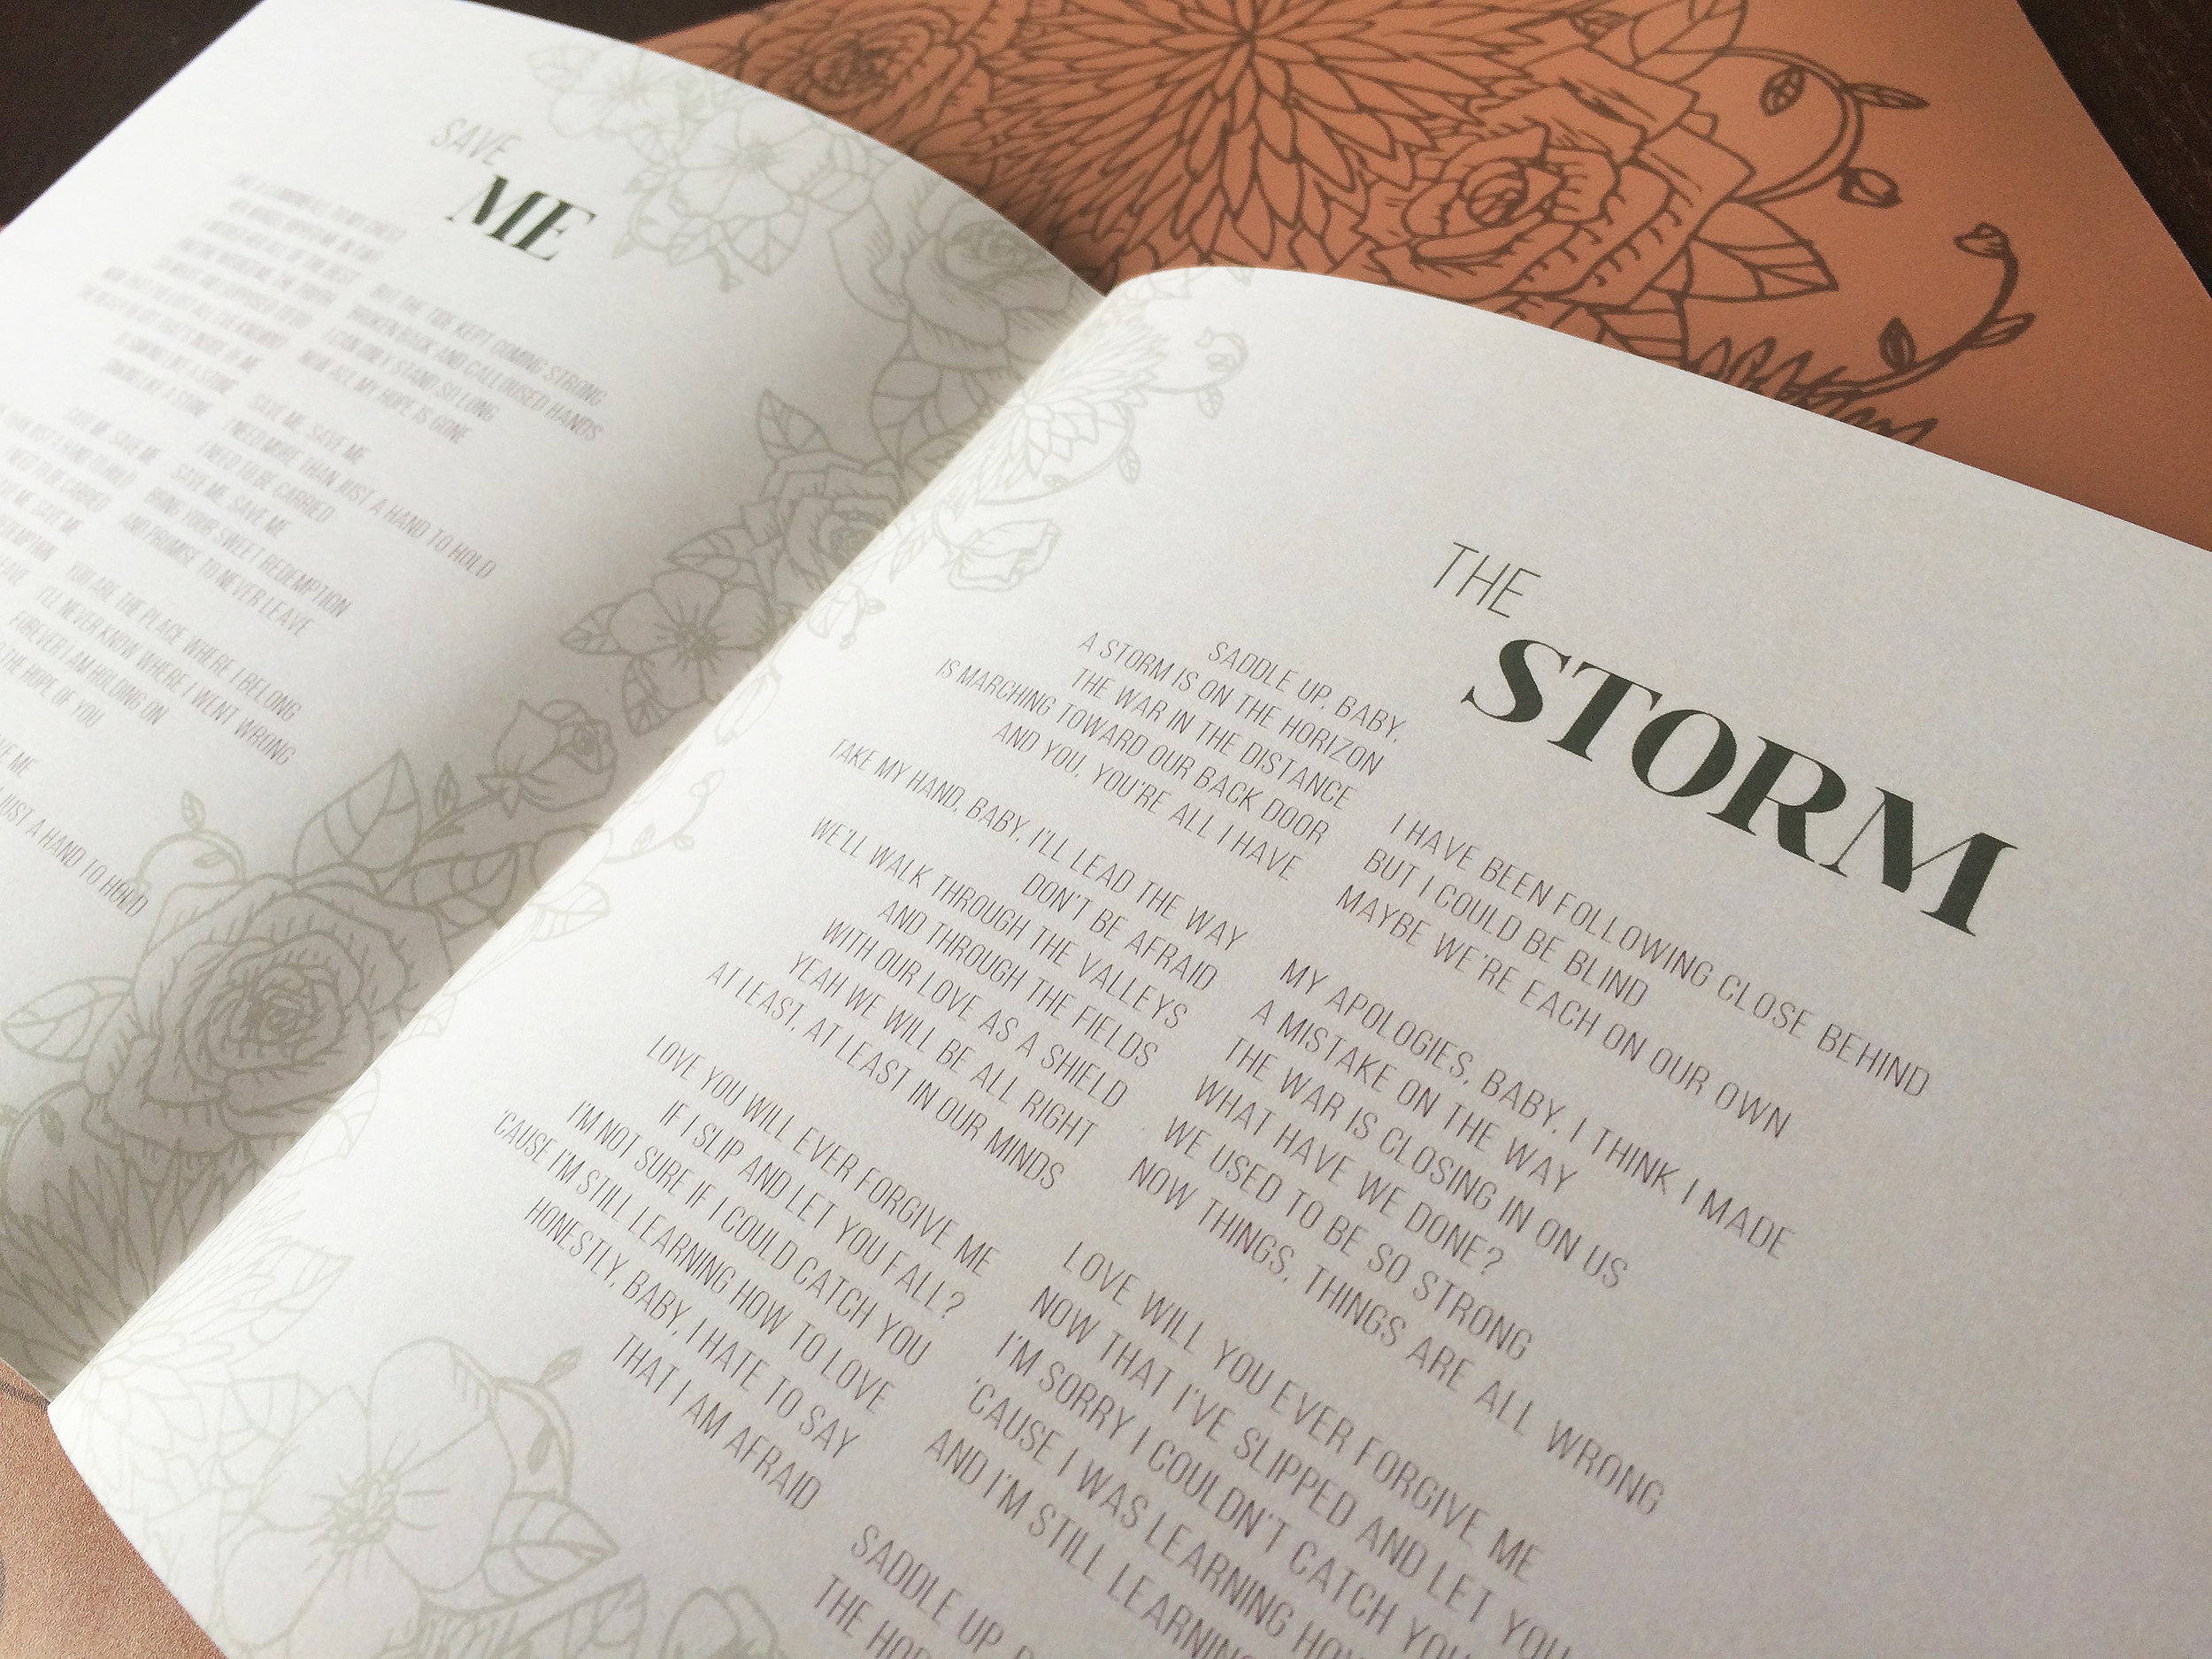 SAVE
ME
BUT THE TIDE KEPT COMING STRONG
BROKEN BACK AND CALLOUSED HANDS
I CAN ONLY STAND SO LONG
NOW ALL MY HOPE IS GONE
SAVE ME, SAVE ME
I NEED MORE THAN JUST A HAND TO HOLD
I NEED TO BE CARRIED
SAVE ME, SAVE ME
BRING YOUR SWEET REDEMPTION
AND PROMISE TO NEVER LEAVE
YOU ARE THE PLACE WHERE I BELONG
I'LL NEVER KNOW WHERE I WENT WRONG
FOREVER I AM HOLDING ON
THE HOPE OF YOU
ME
JUST A HAND TO HOLD
THE
STORM
SADDLE UP, BABY,
A STORM IS ON THE HORIZON
THE WAR IN THE DISTANCE
IS MARCHING TOWARD OUR BACK DOOR
AND YOU, YOU'RE ALL I HAVE
TAKE MY HAND, BABY, I'LL LEAD THE WAY
DON'T BE AFRAID
WE'LL WALK THROUGH THE VALLEYS
AND THROUGH THE FIELDS
WITH OUR LOVE AS A SHIELD
YEAH WE WILL BE ALL RIGHT
AT LEAST, AT LEAST IN OUR MINDS
LOVE YOU WILL EVER FORGIVE ME
IF I SLIP AND LET YOU FALL?
I'M NOT SURE IF I COULD CATCH YOU
'CAUSE I'M STILL LEARNING HOW TO LOVE
HONESTLY, BABY, I HATE TO SAY
THAT I AM AFRAID
I HAVE BEEN FOLLOWING CLOSE BEHIND
BUT I COULD BE BLIND
MAYBE WE'RE EACH ON OUR OWN
MY APOLOGIES, BABY, I THINK I MADE
A MISTAKE ON THE WAY
THE WAR IS CLOSING IN ON US
WHAT HAVE WE DONE?
WE USED TO BE SO STRONG
NOW THINGS, THINGS ARE ALL WRONG
LOVE WILL YOU EVER FORGIVE ME
NOW THAT I'VE SLIPPED AND LET YOU
I'M SORRY I COULDN'T CATCH YOU
'CAUSE I WAS LEARNING HOW
AND I'M STILL LEARNING
SADDLE UP,
THE HOR